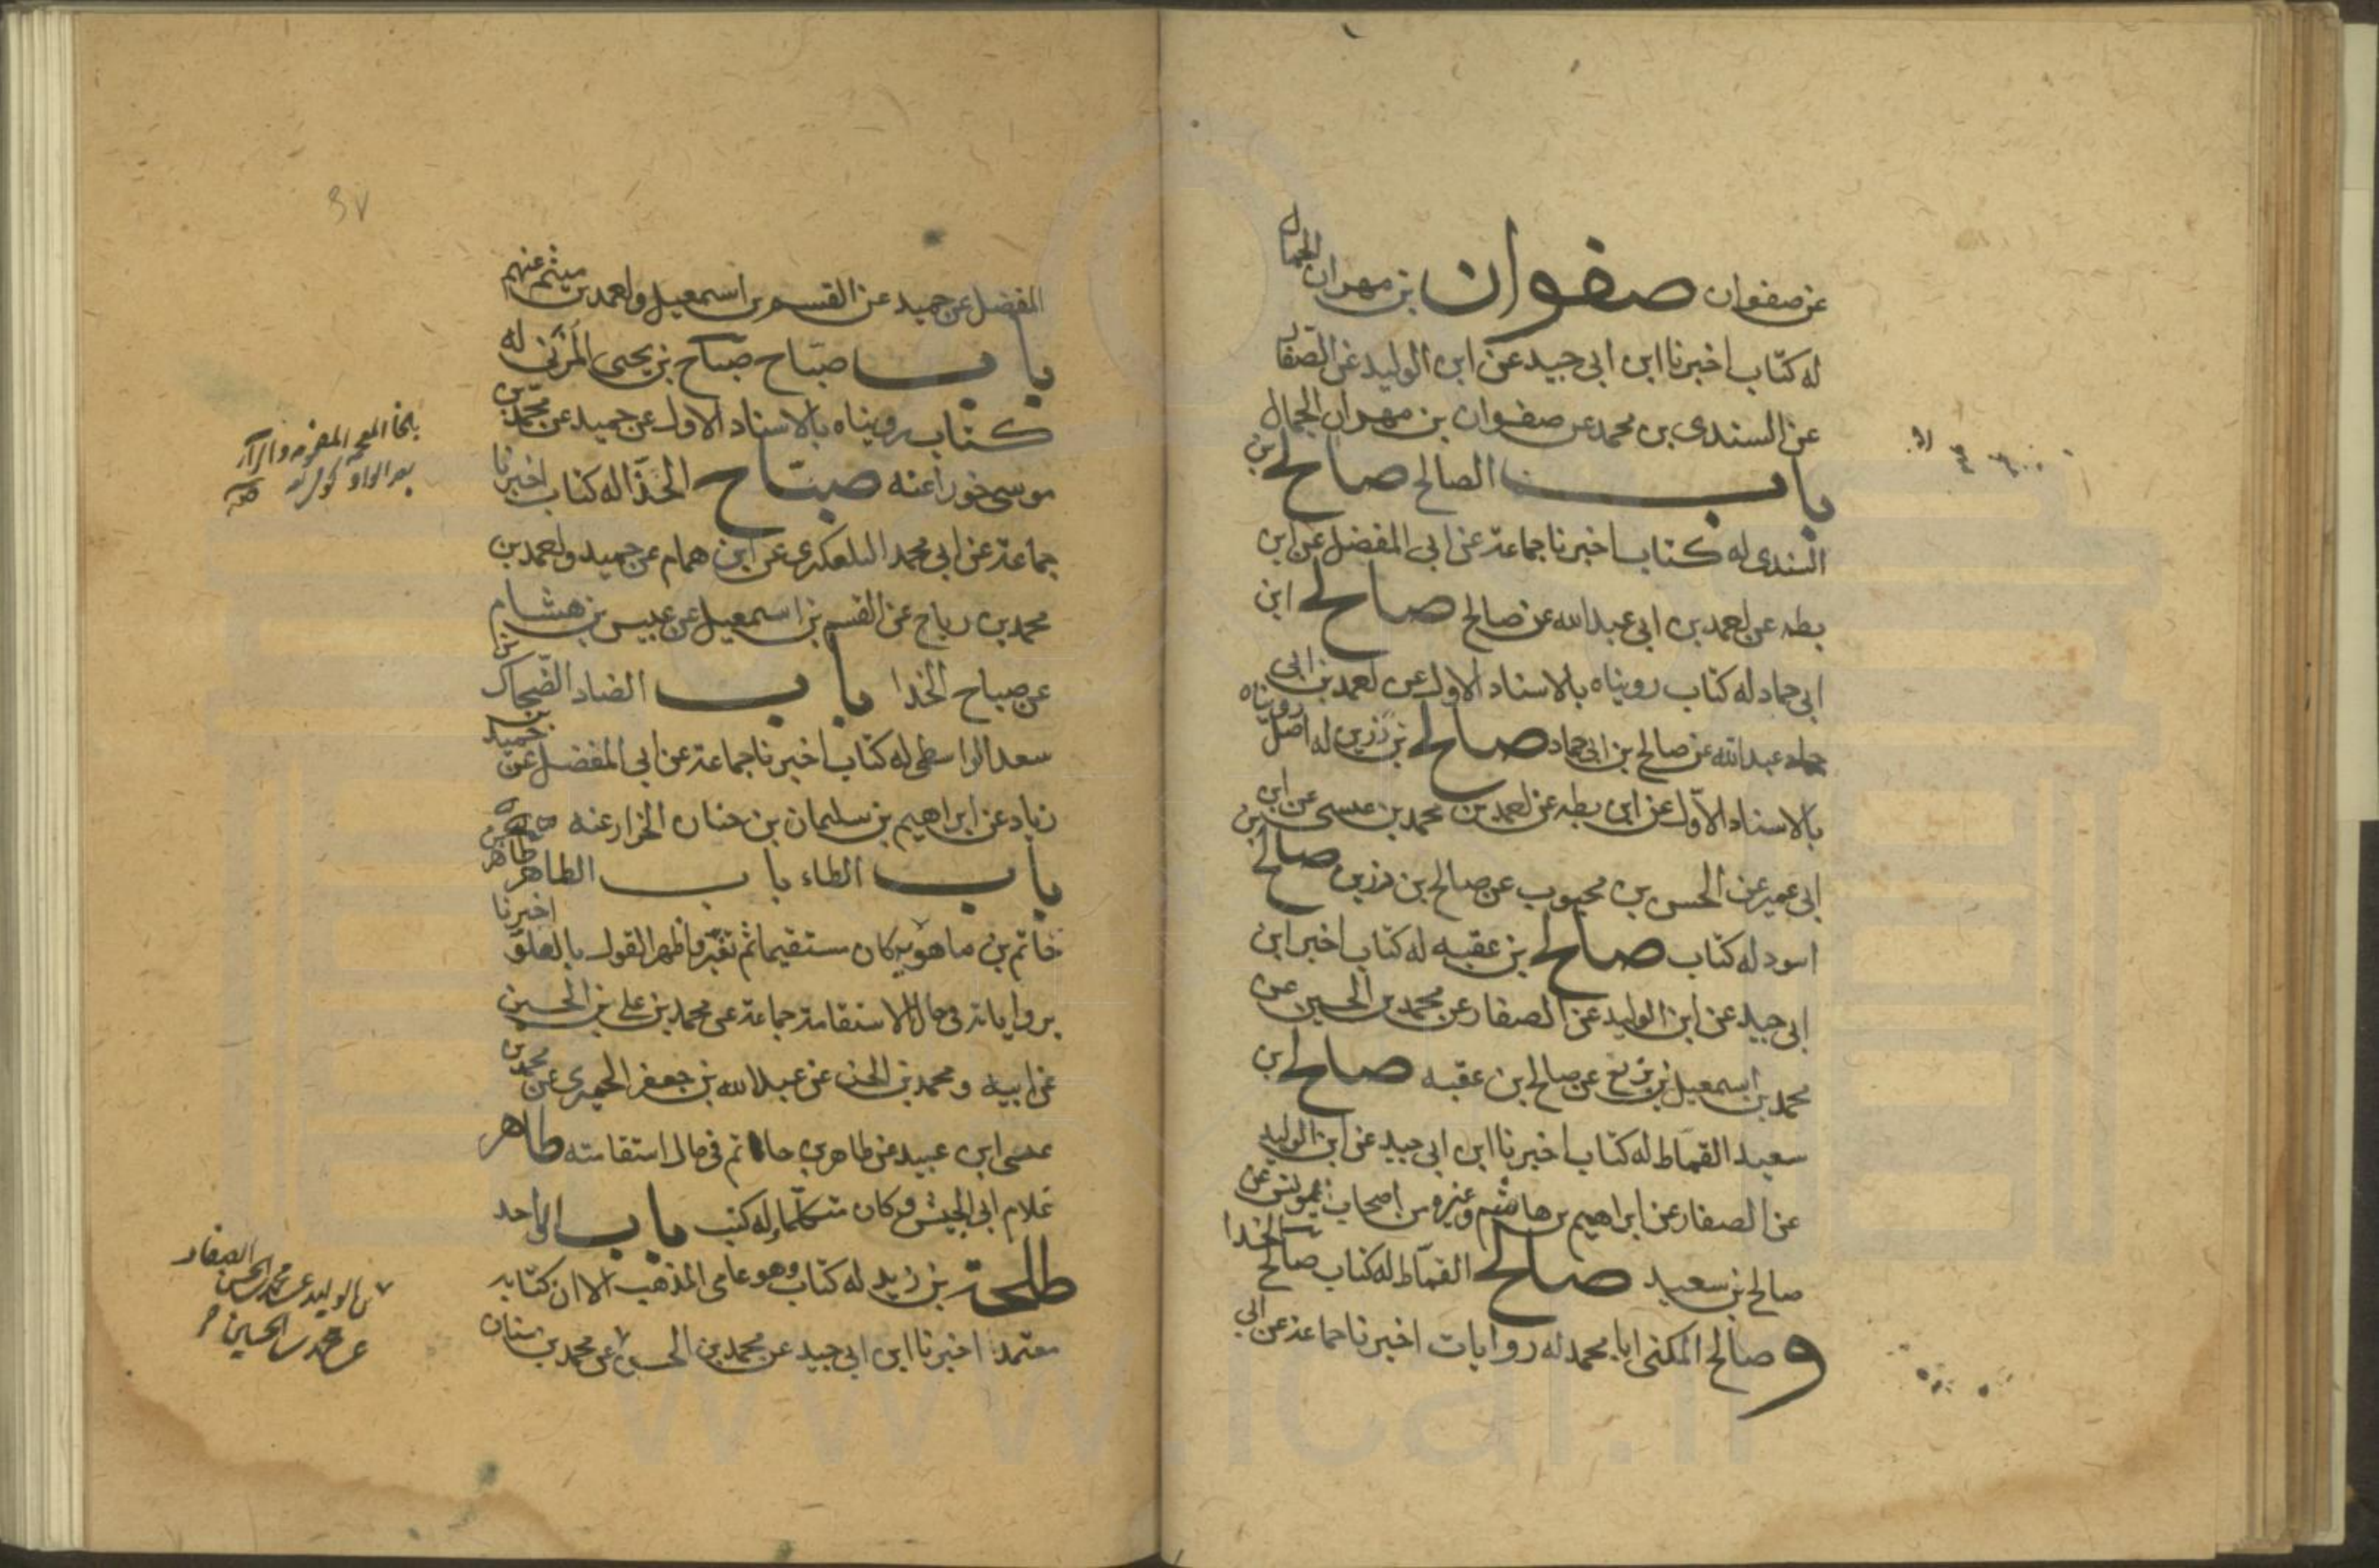 عن صفوان صفوان بن مهران الجمال
له كتاب اخبرنا ابن ابى جيد عن ابن الوليد عن الصفار
عن السندى بن محمد عن صفوان بن مهران الجمال
باب الصالح صالح بن
السندى له كتاب اخبرنا جماعة عن ابى المفضل عن ابن
بطه عن احمد بن ابى عبد الله عن صالح صالح ابن
ابى حماد له كتاب رويناه بالاسناد الاول عن احمد بن ابى
عبد الله عن صالح بن ابى حماد صالح بن رزين له اصل رويناه
بالاسناد الاول عن ابن بطه عن احمد بن محمد بن عيسى عن ابن
ابى عمير عن الحسن بن محبوب عن صالح بن رزين صالح بن
اسود له كتاب صالح بن عقبه له كتاب اخبر ابن
ابى جيد عن ابن الوليد عن الصفار عن محمد بن الحسين عن
محمد بن اسمعيل بن بزيع عن صالح بن عقبه صالح ابن
سعيد القماط له كتاب اخبرنا ابن ابى جيد عن ابن الوليد
عن الصفار عن ابراهيم بن هاشم وغيره من اصحاب يونس عن
صالح بن سعيد صالح القماط له كتاب صالح الحذا
و صالح المكنى ابا محمد له روايات اخبرنا جماعة عن ابى
٣٧
المفضل عن حميد عن القسم بن اسمعيل واحمد بن ميثم عنهم
باب صباح صباح بن يحيى المزنى له
كتاب رويناه بالاسناد الاول عن حميد عن محمد بن
موسى خورا عنه صباح الحذا له كتاب اخبرنا
جماعة عن ابى محمد التلعكبرى عن ابن همام عن حميد واحمد بن
محمد بن رباح عن القسم بن اسمعيل عن عبيس بن هشام
عن صباح الحذا باب الضاد الضحاك بن
سعد الواسطى له كتاب اخبرنا جماعة عن ابى المفضل عن حميد بن
زياد عن ابراهيم بن سليمان بن حنان الخزاز عنه
باب الطاء باب الطاهر طاهر بن
حاتم بن ماهويه كان مستقيما ثم تغير فاظهر القول بالغلو اخبرنا
برواياته فى حال الاستقامة جماعة عن محمد بن على بن الحسين
عن ابيه ومحمد بن الحسن عن عبد الله بن جعفر الحميرى عن محمد بن
عيسى ابن عبيد عن طاهر بن حاتم فى حال استقامته طاهر
غلام ابى الجيش وكان متكلما له كتب باب الواحد
طلحة بن زيد له كتاب وهو عامى المذهب الا ان كتابه
معتمد اخبرنا ابن ابى جيد عن محمد بن الحسن عن محمد بن سنان
بالخا المعجمه المضمومه والراء
بعد الواو
بن الوليد عن محمد بن الحسن الصفار
عن محمد بن الحسين
www.ical.ir